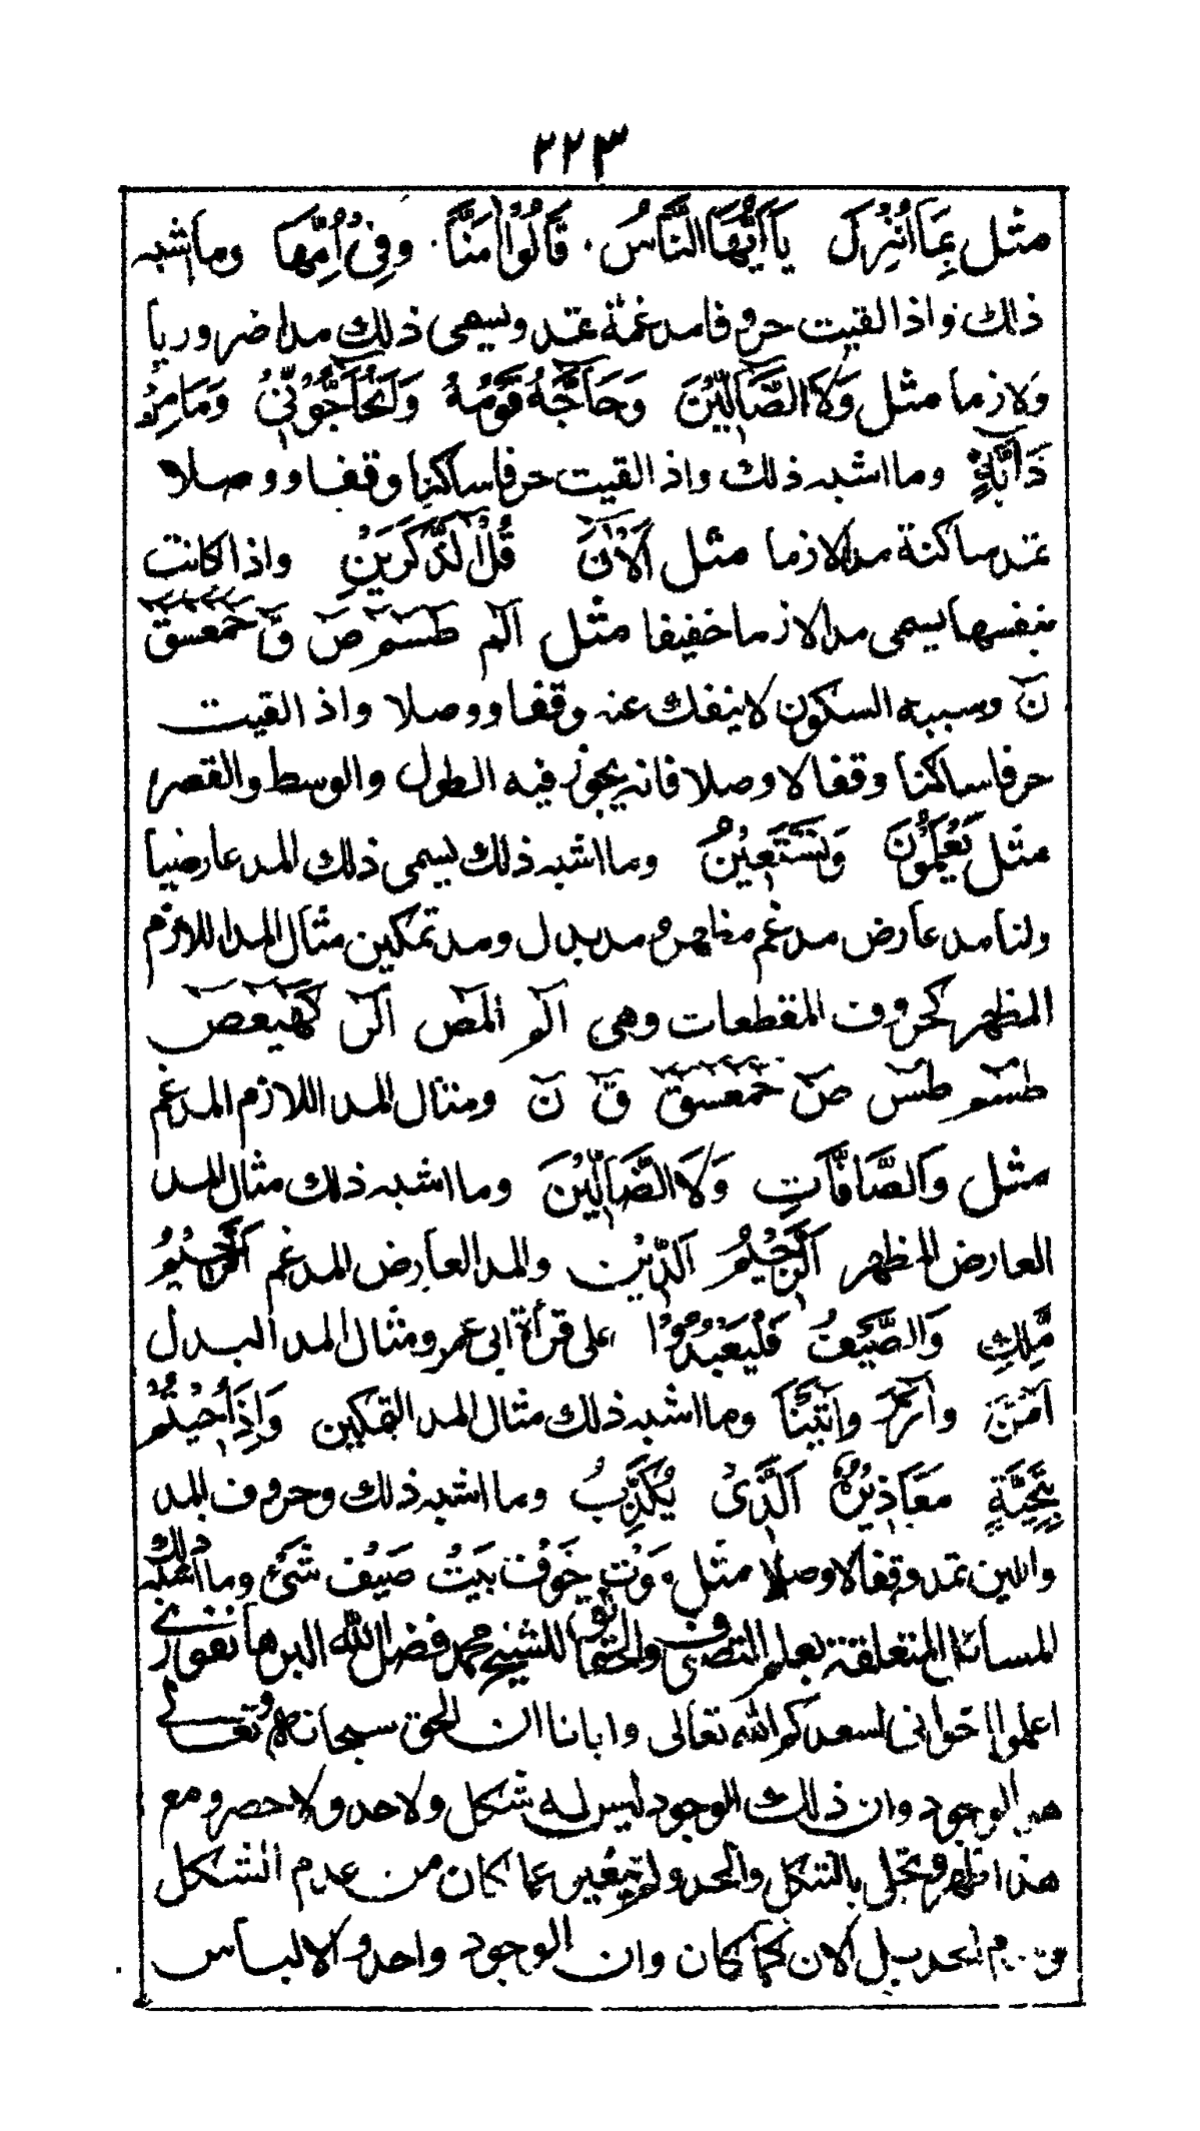 ٢٢٣
مثل بِمَا اُنْزِلَ يَا اَيُّهَا النَّاسُ. قَالُوْا اٰمَنَّا. وَفِىْ اُمِّهَا وما اشبه
ذلك واذا لقيت حروفا مدغمة تمد ويسمى ذلك مدا ضروريا
ولازما مثل وَلَا الضَّآلِّيْنَ وَحَآجَّهُ قَوْمُهُ وَاَتُحَآجُّوْنِّىْ وَمَا مِنْ
دَآبَّةٍ وما اشبه ذلك واذا لقيت حرفا ساكنا وقفا ووصلا
تمد ساكنة مدا لازما مثل آلْاٰنَ قُلْ آلذَّكَرَيْنِ واذا كانت
بنفسها يسمى مدا لازما خفيفا مثل الٓمٓ طٰسٓمٓ صٓ قٓ حٰمٓعٓسٓقٓ
نٓ وسببه السكون لا ينفك عنه وقفا ووصلا واذا لقيت
حرفا ساكنا وقفا لا وصلا فانه يجوز فيه الطول والوسط والقصر
مثل يَعْلَمُوْنَ وَنَسْتَعِيْنُ وما اشبه ذلك يسمى ذلك المد عارضيا
ولنا مد عارض مدغم مظهر ومد بدل ومد تمكين مثال المد اللازم
المظهر كحروف المقطعات وهى الٓمٓ الٓمٓصٓ الٓرٰ كٓهٰيٰعٓصٓ
طٰسٓمٓ طٰسٓ صٓ حٰمٓعٓسٓقٓ قٓ نٓ ومثال المد اللازم المدغم
مثل وَالصَّآفَّاتِ وَلَا الضَّآلِّيْنَ وما اشبه ذلك مثال المد
العارض المظهر اَلرَّحِيْمُ اَلدِّيْنِ والمد العارض المدغم اَلرَّحِيْمُ
مَّلِكِ وَالصَّيْفِ فَلْيَعْبُدُوْا على قرأة ابى عمرو ومثال المد البدل
اٰمَنَ وَاٰزَرَ وَاٰتَيْنَا وما اشبه ذلك مثال المد التمكين وَاِذَا حُيِّيْتُمْ
بِتَحِيَّةٍ مَعَاذِيْرَهُ اَلَّذِىْ يُكَذِّبُ وما اشبه ذلك وحروف المد
واللين تمد وقفا لا وصلا مثل مَوْت خَوْف بَيْتُ صَيْف شَىْءٍ وما اشبه ذلك
المسائل المتعلقة بعلم التصوف والحقائق للشيخ محمد فضل الله البرهانفورى
اعلموا اخوانى اسعدكم الله تعالى وايانا ان الحق سبحانه وتعالى
هو الوجود وان ذلك الوجود ليس له شكل ولا حد ولا حصر ومع
هذا ظهر وتجلى بالشكل والحد ولم يتغير عما كان من عدم الشكل
وعدم الحد بل الان كما كان وان الوجود واحد والالباس